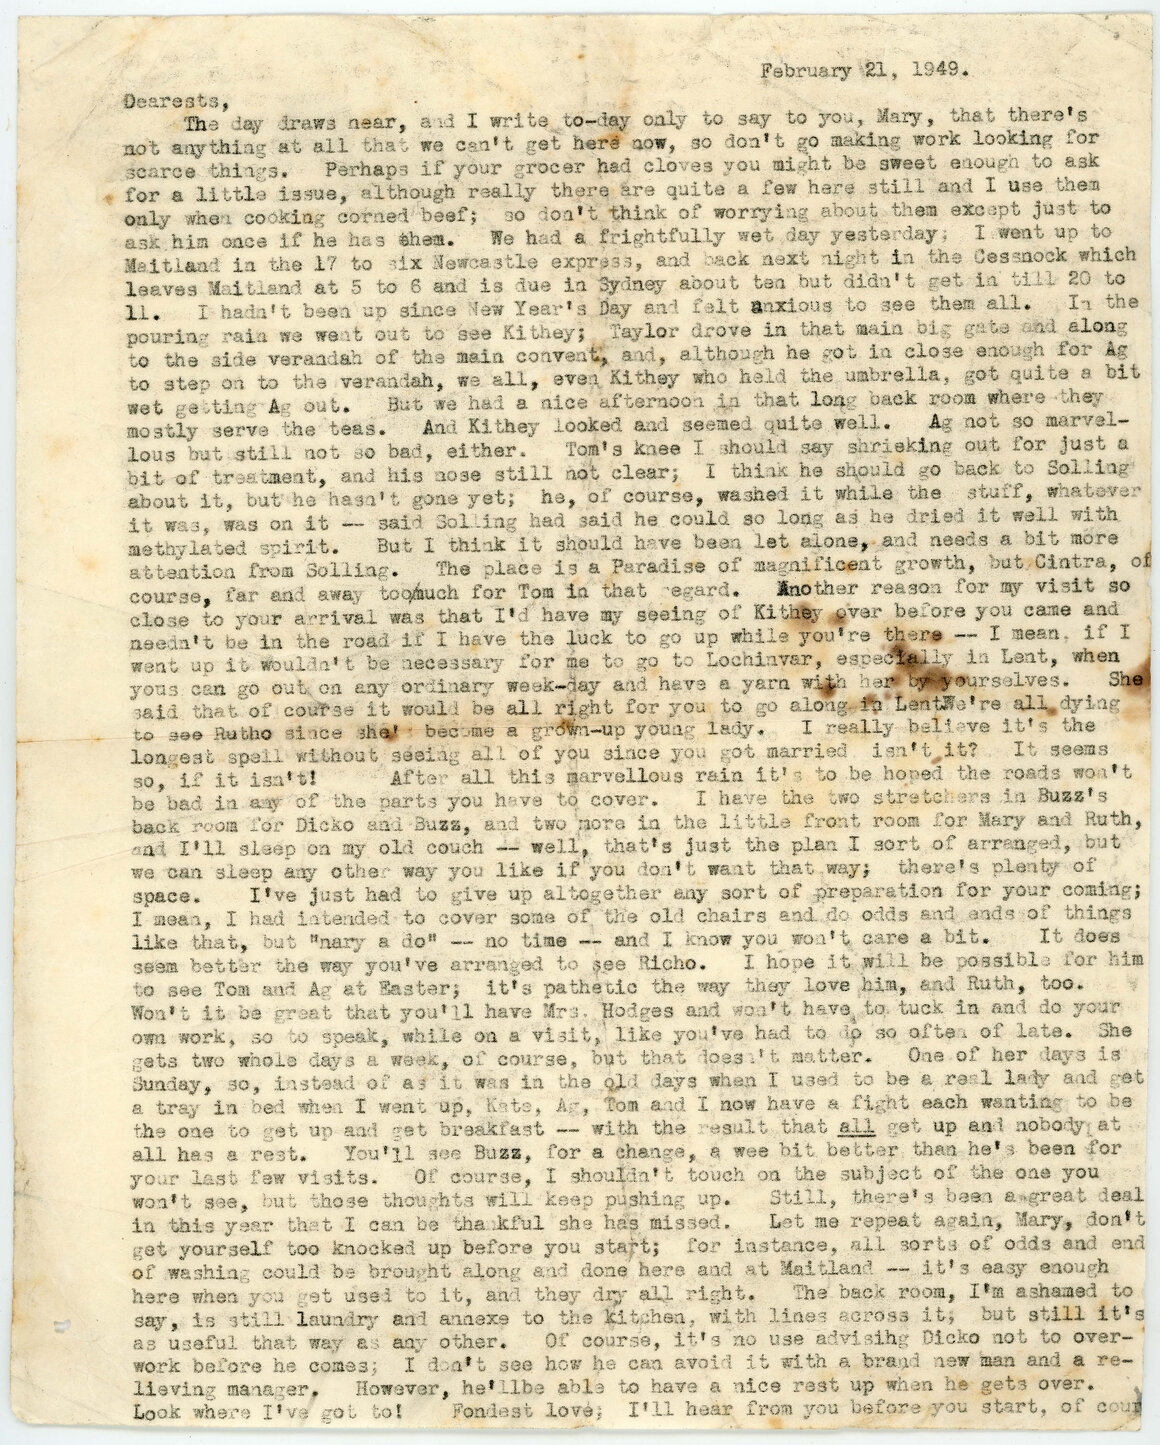 February 21, 1949.
Dearests,
The day draws near, and I write to-day only to say to you, Mary, that there's
not anything at all that we can't get here now, so don't go making work looking for
scarce things. Perhaps if your grocer had cloves you might be sweet enough to ask
for a little issue, although really there are quite a few here still and I use them
only when cooking corned beef; so don't think of worrying about them except just to
ask him once if he has them. We had a frightfully wet day yesterday; I went up to
Maitland in the 17 to six Newcastle express, and back next night in the Cessnock which
leaves Maitland at 5 to 6 and is due in Sydney about ten but didn't get in till 20 to
11. I hadn't been up since New Year's Day and felt anxious to see them all. In the
pouring rain we went out to see Kithey; Taylor drove in that main big gate and along
to the side verandah of the main convent, and, although he got in close enough for Ag
to step on to the verandah, we all, even Kithey who held the umbrella, got quite a bit
wet getting Ag out. But we had a nice afternoon in that long back room where they
mostly serve the teas. And Kithey looked and seemed quite well. Ag not so marvel-
lous but still not so bad, either. Tom's knee I should say shrieking out for just a
bit of treatment, and his nose still not clear; I think he should go back to Solling
about it, but he hasn't gone yet; he, of course, washed it while the stuff, whatever
it was, was on it -- said Solling had said he could so long as he dried it well with
methylated spirit. But I think it should have been let alone, and needs a bit more
attention from Solling. The place is a Paradise of magnificent growth, but Cintra, of
course, far and away too/much for Tom in that regard. Another reason for my visit so
close to your arrival was that I'd have my seeing of Kithey over before you came and
needn't be in the road if I have the luck to go up while you're there -- I mean, if I
went up it wouldn't be necessary for me to go to Lochinvar, especially in Lent, when
yous can go out on any ordinary week-day and have a yarn with her by yourselves. She
said that of course it would be all right for you to go along in Lent. We're all dying
to see Rutho since she's become a grown-up young lady. I really believe it's the
longest spell without seeing all of you since you got married, isn't it? It seems
so, if it isn't! After all this marvellous rain it's to be hoped the roads won't
be bad in any of the parts you have to cover. I have the two stretchers in Buzz's
back room for Dicko and Buzz, and two more in the little front room for Mary and Ruth,
and I'll sleep on my old couch -- well, that's just the plan I sort of arranged, but
we can sleep any other way you like if you don't want that way; there's plenty of
space. I've just had to give up altogether any sort of preparation for your coming;
I mean, I had intended to cover some of the old chairs and do odds and ends of things
like that, but "nary a do" -- no time -- and I know you won't care a bit. It does
seem better the way you've arranged to see Richo. I hope it will be possible for him
to see Tom and Ag at Easter; it's pathetic the way they love him, and Ruth, too.
Won't it be great that you'll have Mrs. Hodges and won't have to tuck in and do your
own work, so to speak, while on a visit, like you've had to do so often of late. She
gets two whole days a week, of course, but that doesn't matter. One of her days is
Sunday, so, instead of as it was in the old days when I used to be a real lady and get
a tray in bed when I went up, Kate, Ag, Tom and I now have a fight each wanting to be
the one to get up and get breakfast -- with the result that all get up and nobody at
all has a rest. You'll see Buzz, for a change, a wee bit better than he's been for
your last few visits. Of course, I shouldn't touch on the subject of the one you
won't see, but those thoughts will keep pushing up. Still, there's been a great deal
in this year that I can be thankful she has missed. Let me repeat again, Mary, don't
get yourself too knocked up before you start; for instance, all sorts of odds and end
of washing could be brought along and done here and at Maitland -- it's easy enough
here when you get used to it, and they dry all right. The back room, I'm ashamed to
say, is still laundry and annexe to the kitchen, with lines across it; but still it's
as useful that way as any other. Of course, it's no use advisihg Dicko not to over-
work before he comes; I don't see how he can avoid it with a brand new man and a re-
lieving manager. However, he'llbe able to have a nice rest up when he gets over.
Look where I've got to! Fondest love; I'll hear from you before you start, of cour